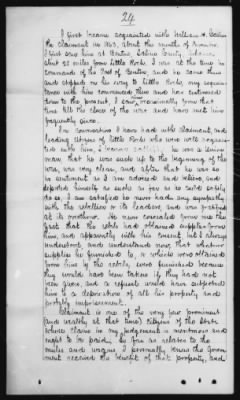 24
I first became acquainted with William H.
the Claimant in 1863, about the month of
I first saw him at Benton, Saline County, Arkansas,
about 25 miles from Little Rock. I was at the time in
command of the Post of Benton, and he came there
and stopped on his way to Little Rock, my acquain-
tance with him commenced then and has continued
down to the present, I saw him occasionally from that
time till the close of the war and have met him
frequently since.
In conversations I have had with Claimant, and
leading citizens of Little Rock who were well acquain-
ted with him, I learned that he was a Union
man that he was such up to the beginning of the
war, was very clear, and after that he was so
in sentiment as I am informed and believe and
deported himself as such so far as he could safely
do so. I am satisfied he never had any sympathy
with the rebellion or its leaders, and was gratified
at its overthrow. He never concealed from me the
fact that the rebels had obtained supplies from
him, and apparently with his consent, but I always
understood, and understand now, that whatever
supplies he furnished to, or which were obtained
from him by the rebels, were furnished because
they would have been taken if they had not
been given, and a refusal would have subjected
him to a deprivation of all his property and
probably imprisonment.
Claimant is one of the very few prominent
(and wealthy at that time) citizens of the State
whose claim in my judgement is meritorious and
ought to be paid, so far as relates to the
mules and wagons I personally know the Govern-
ment received the benefit of that property, and